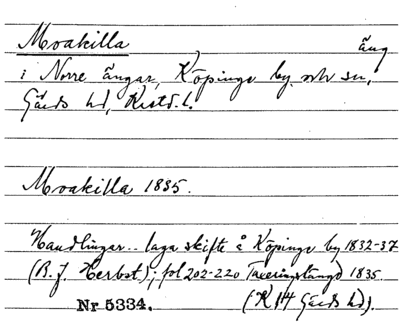 Moakilla, äng
i Norre ängar, Köpinge by och sn,
Gärds hd, Krist. l.
Moakilla 1835.
Handlingar .. laga skifte å Köpinge by 1832-37
(B. J. Herbst); fol 202-220 Taxeringslängd 1835.
(K 14 Gärds hd).
Nr 5334.